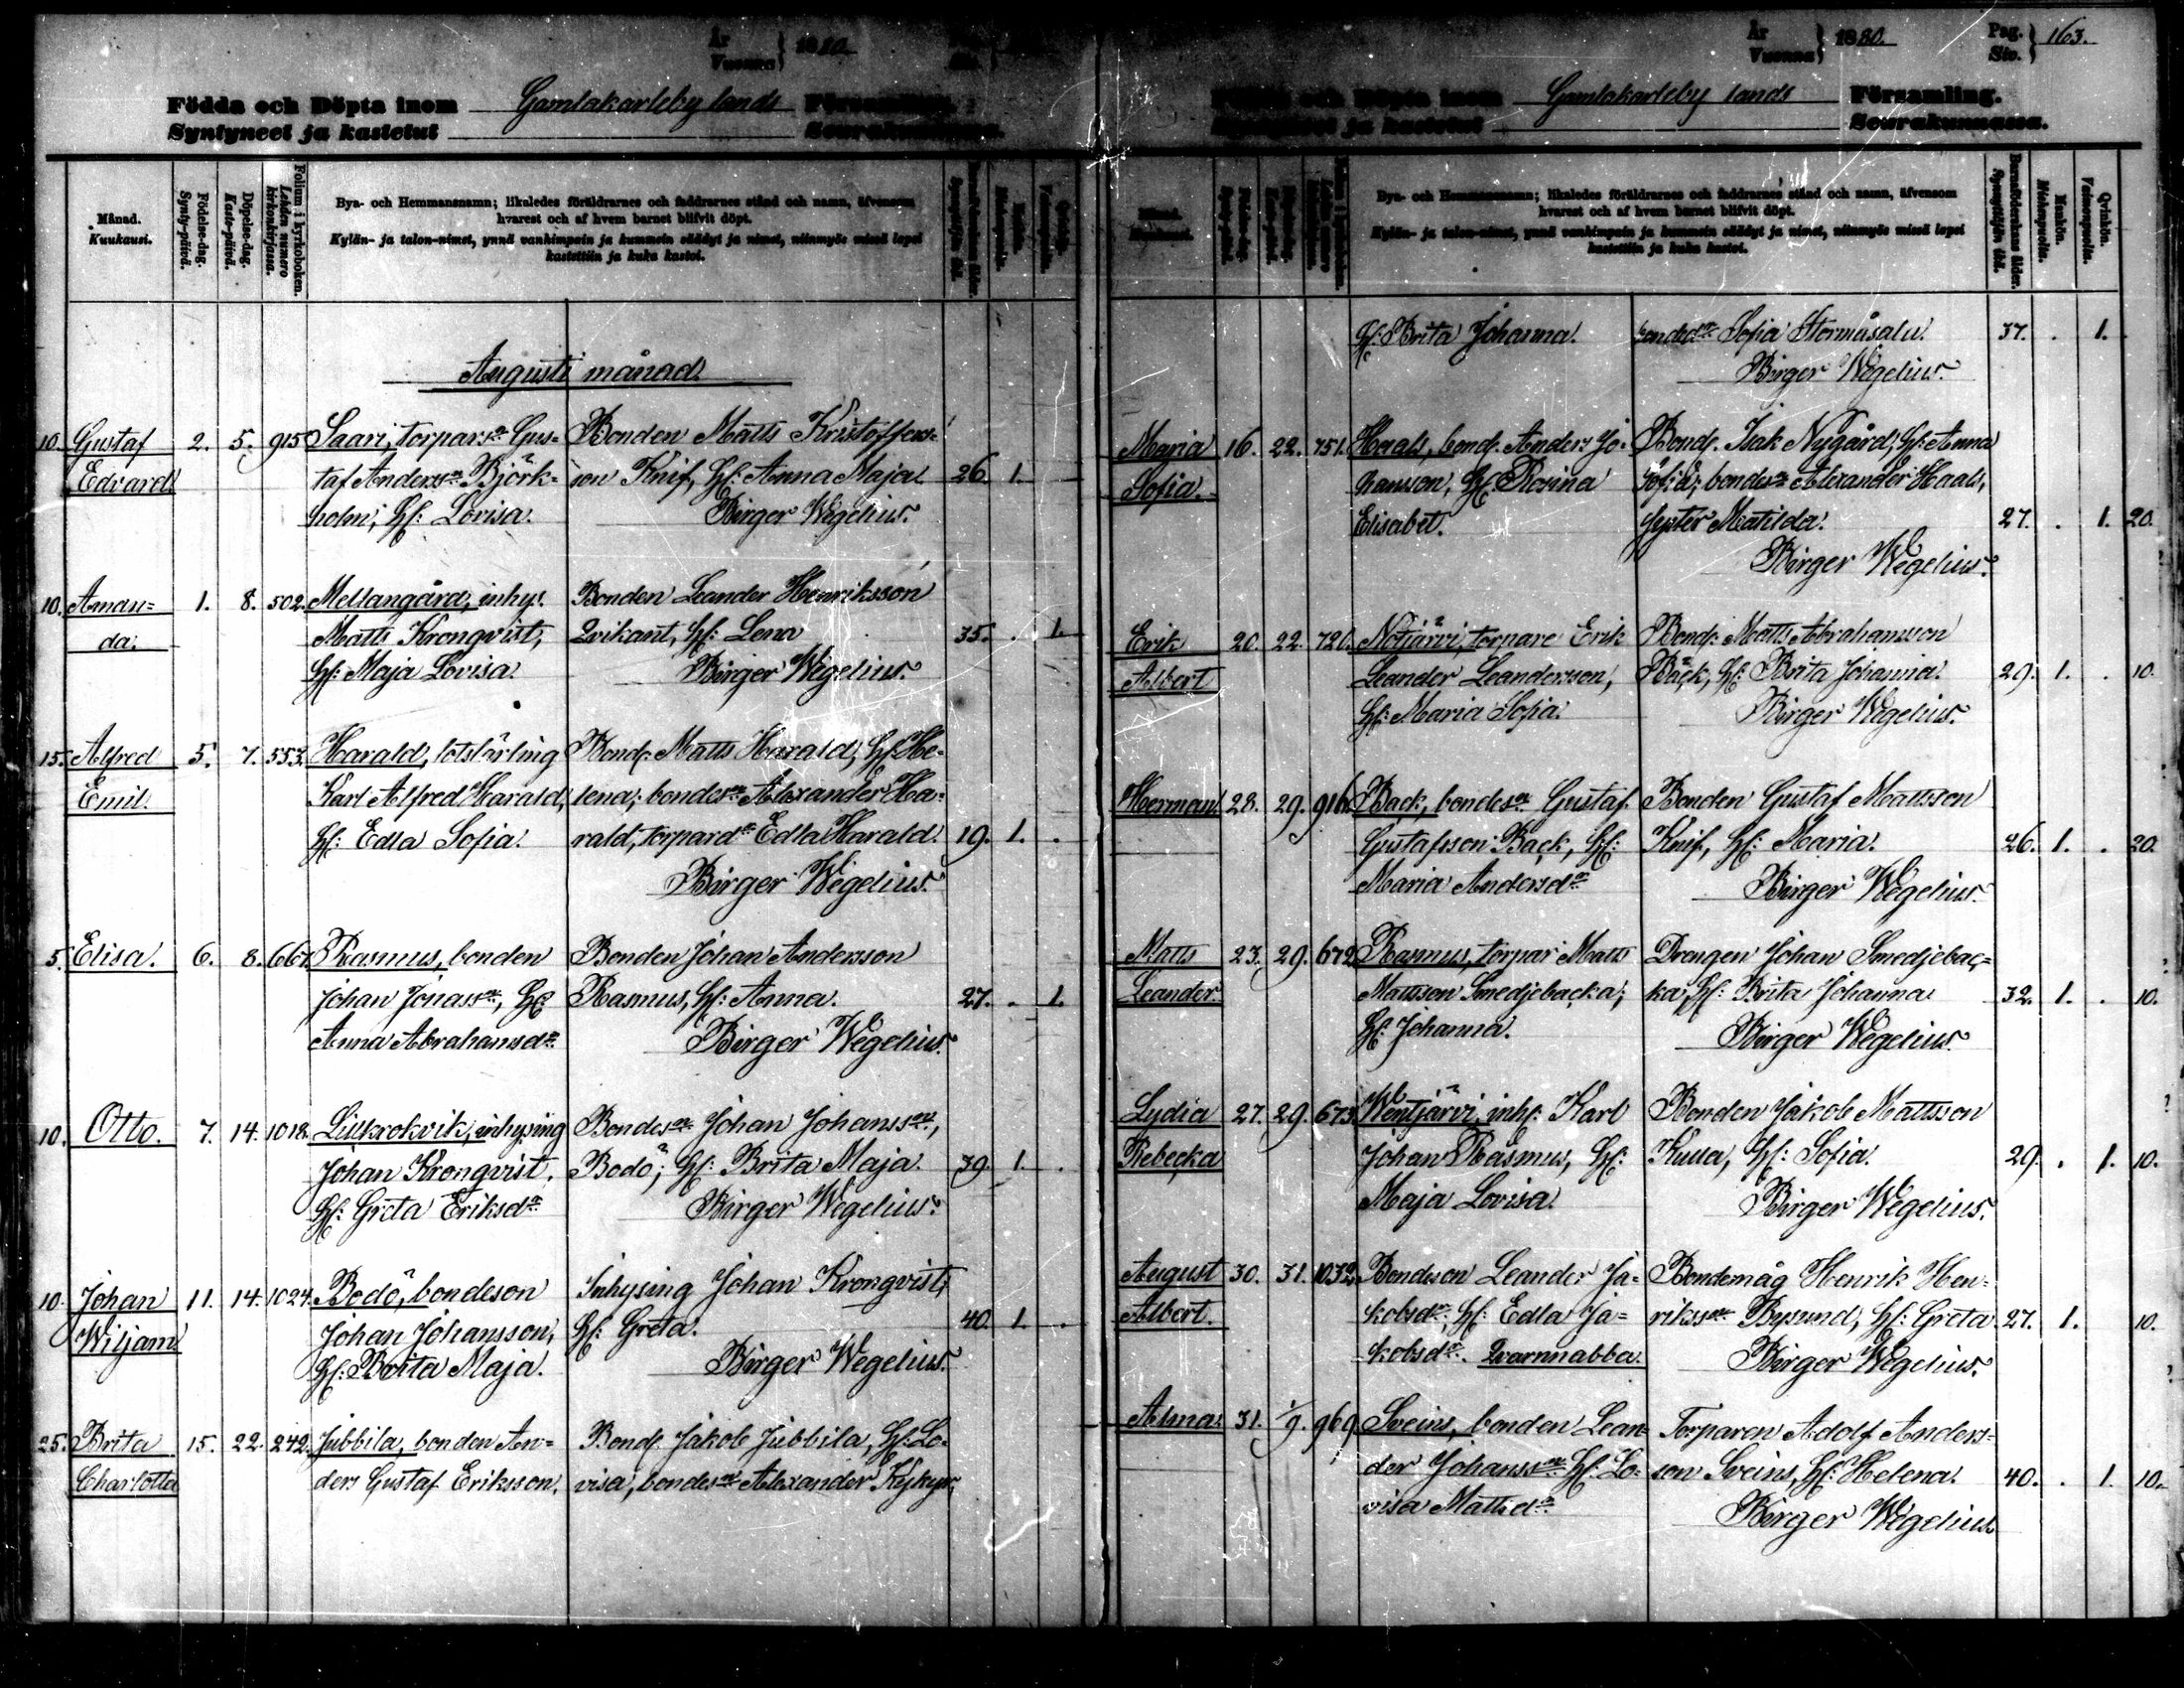 År
Vuonna } 1880.
Födda och Döpta inom Gamlakarleby lands Församling.
Syntyneet ja kastetut Seurakunnassa.
Månad.
Kuukausi.
Födelse-dag.
Synty-päivä.
Döpelse-dag.
Kaste-päivä.
Folium i kyrkoboken.
Lehden numero kirkonkirjassa.
Bya- och Hemmansnamn; likaledes föräldrarnes och faddrarnes stånd och namn, äfvensom
hvarest och af hvem barnet blifvit döpt.
Kylän- ja talon-nimet, ynnä vanhimpain ja kummein säädyt ja nimet, niinmyös missä lapsi
kastettiin ja kuka kastoi.
Augusti månad.
10. Gustaf 2. 5. 915 Saari, torpars:n Gus= Bonden Matts Kristoffers=
Edvard taf Anderss:n Björk= son Knif, Hf: Anna Maja. 26. 1. .
holm; Hf: Lovisa. Birger Wegelius.
10. Aman= 1. 8. 502. Mellangård, inhys. Bonden Leander Henriksson
da. Matts Kronqvist, Qvikant, Hf: Lena 35. . 1.
Hf: Maja Lovisa. Birger Wegelius.
15. Alfred 5. 7. 553. Harald, lotslärling Bond. Matts Harald, Hf: He-
Emil. Karl Alfred Harald, lena; bondes:n Alexander Ha=
Hf: Edla Sofia. rald, torpard:r Edla Harald. 19. 1. .
Birger Wegelius.
5. Elisa. 6. 8. 667. Rasmus, bonden Bonden Johan Andersson
Johan Jonass:n, Hf: Rasmus, Hf: Anna. 27. . 1.
Anna Abrahamsd:r Birger Wegelius.
10. Otto. 7. 14. 1018. Lillkrokvik, inhysing Bondes:n Johan Johanss:n,
Johan Kronqvist. Bodö; Hf: Brita Maja. 39. 1. .
Hf: Greta Eriksd:r Birger Wegelius.
10. Johan 11. 14. 1024. Bodö, bondeson Inhysing Johan Kronqvist,
Wiljam Johan Johansson, Hf: Greta. 40. 1. .
Hf: Brita Maja. Birger Wegelius.
25. Brita 15. 22. 242. Jubbila, bonden An= Bond. Jakob Jubbila, Hf: Lo-
Charlotta ders Gustaf Eriksson, visa, bondes:n Alexander Kykyr,
År
Vuonna } 1880.
Pag.
Siv. } 163.
Födda och Döpta inom Gamlakarleby lands Församling.
Syntyneet ja kastetut Seurakunnassa.
Bya- och Hemmansnamn; likaledes föräldrarnes och faddrarnes stånd och namn, äfvensom
hvarest och af hvem barnet blifvit döpt.
Kylän- ja talon-nimet, ynnä vanhimpain ja kummein säädyt ja nimet, niinmyös missä lapsi
kastettiin ja kuka kastoi.
Barnföderskans ålder.
Synnyttäjän ikä.
Mankön.
Miehenpuolia.
Qvinkön.
Vaimonpuolia.
Hf: Brita Johanna. bonded:r Sofia Stormåsala. 37. . 1.
Birger Wegelius.
Maria 16. 22. 751. Haals, bond. Anders Jo- Bond. Isak Nygård; Hf: Anna
Sofia. hansson, Hf: Rosina Sofia; bondes:n Alexander Haals,
Elisabet. syster Matilda. 27. . 1. 20.
Birger Wegelius.
Erik 20. 22. 720. Notjärvi, torpare Erik Bond. Matts Abrahamsson
Albert Leander Leandersson, Bäck, Hf: Brita Johanna. 29. 1. . 10.
Hf: Maria Sofia. Birger Wegelius.
Herman 28. 29. 916. Back, bondes:n Gustaf Bonden Gustaf Mattsson
Gustafsson Back, Hf: Knif, Hf: Maria. 26. 1. . 20.
Maria Andersd:r Birger Wegelius.
Matts 23. 29. 672 Rasmus, torpar. Matts Drengen Johan Smedjebac=
Leander Mattsson Smedjebacka; ka, Hf: Brita Johanna 32. 1. . 10.
Hf: Johanna. Birger Wegelius.
Lydia 27. 29. 673. Wentjärvi, inh. Karl Bonden Jakob Mattsson
Rebecka Johan Rasmus, Hf: Kulla, Hf: Sofia. 29. . 1. 10.
Maja Lovisa. Birger Wegelius.
August 30. 31. 1032. Bondeson Leander Ja- Bondemåg Henrik Hen-
Albert. kobss:n; Hf: Edla Ja= rikss:n Bysund, Hf: Greta 27. 1. 10.
kobsd:r. Qvarnnabba. Birger Wegelius.
Alma. 31. 1/9. 969. Sveins, bonden Lean- Torparen Adolf Anders=
der Johanss:n Hf: Lo- son Sveins, Hf: Helena. 40. . 1. 10.
visa Mattsd:r Birger Wegelius